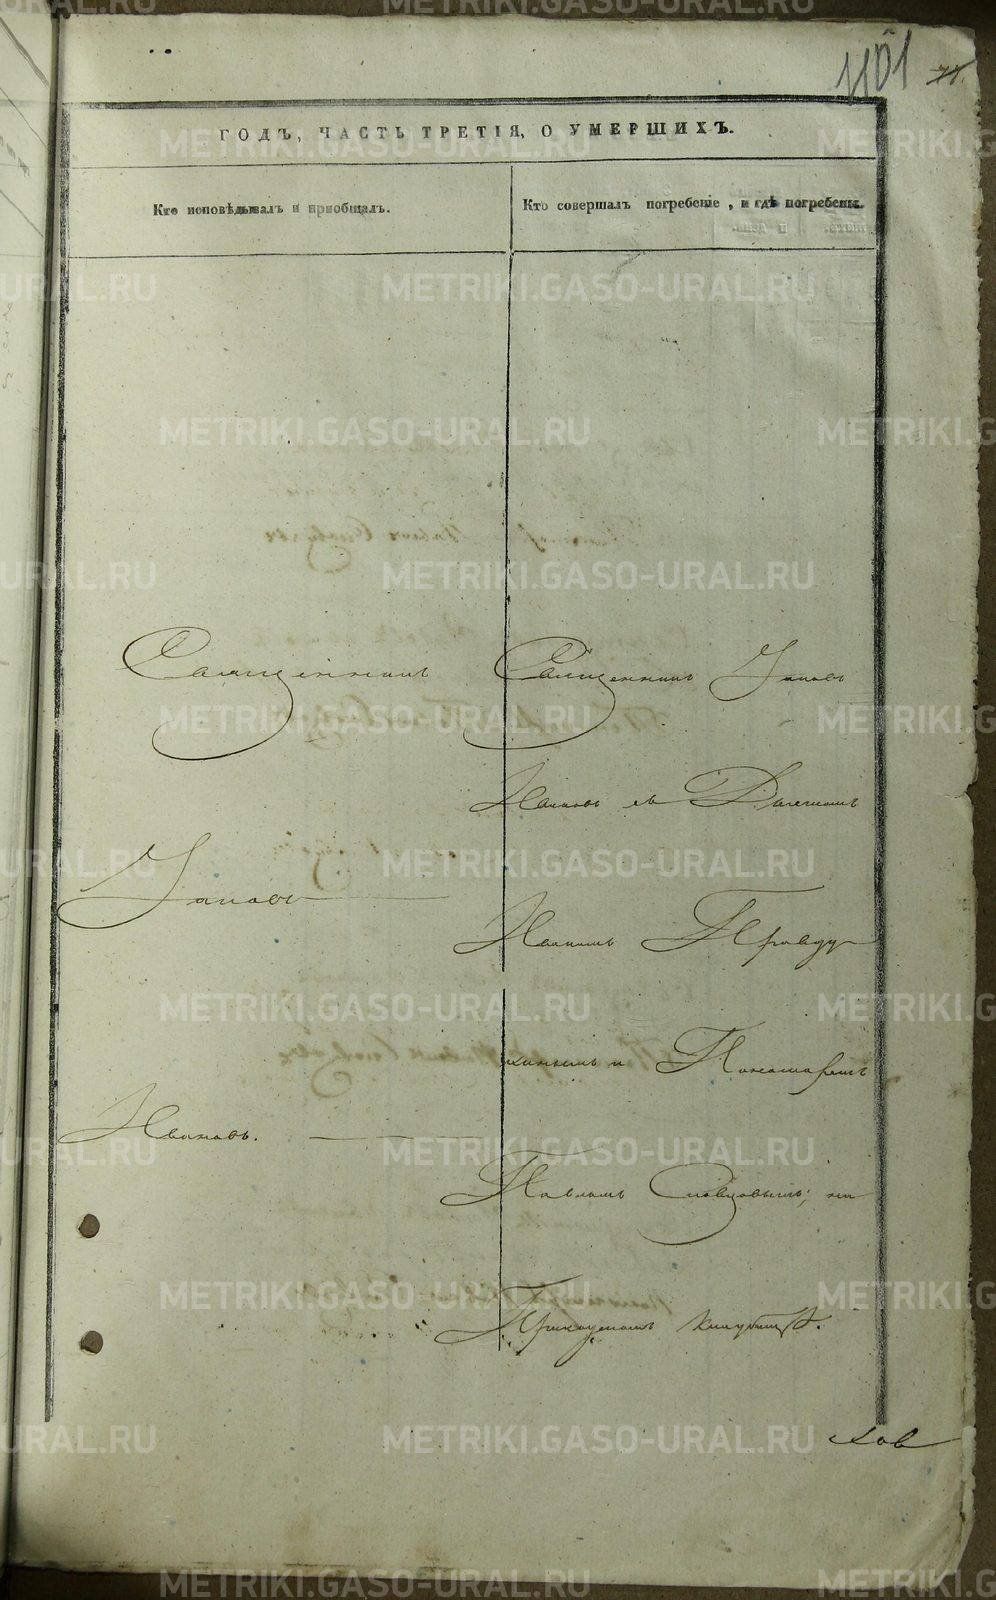 1101 71.
ГОДЪ, ЧАСТЬ ТРЕТІЯ, О УМЕРШИХЪ.
Кто исповѣдывалъ и пріобщалъ.
Кто совершалъ погребеніе, и гдѣ погребены.
Священникъ
Іаковъ
Ивановъ.
Священникъ Іаковъ
Ивановъ съ Дьячкомъ
Иваномъ
и Пономаремъ
Павломъ Словцовымъ; на
Приходскомъ кладбищѣ.
METRIKI.GASO-URAL.RU